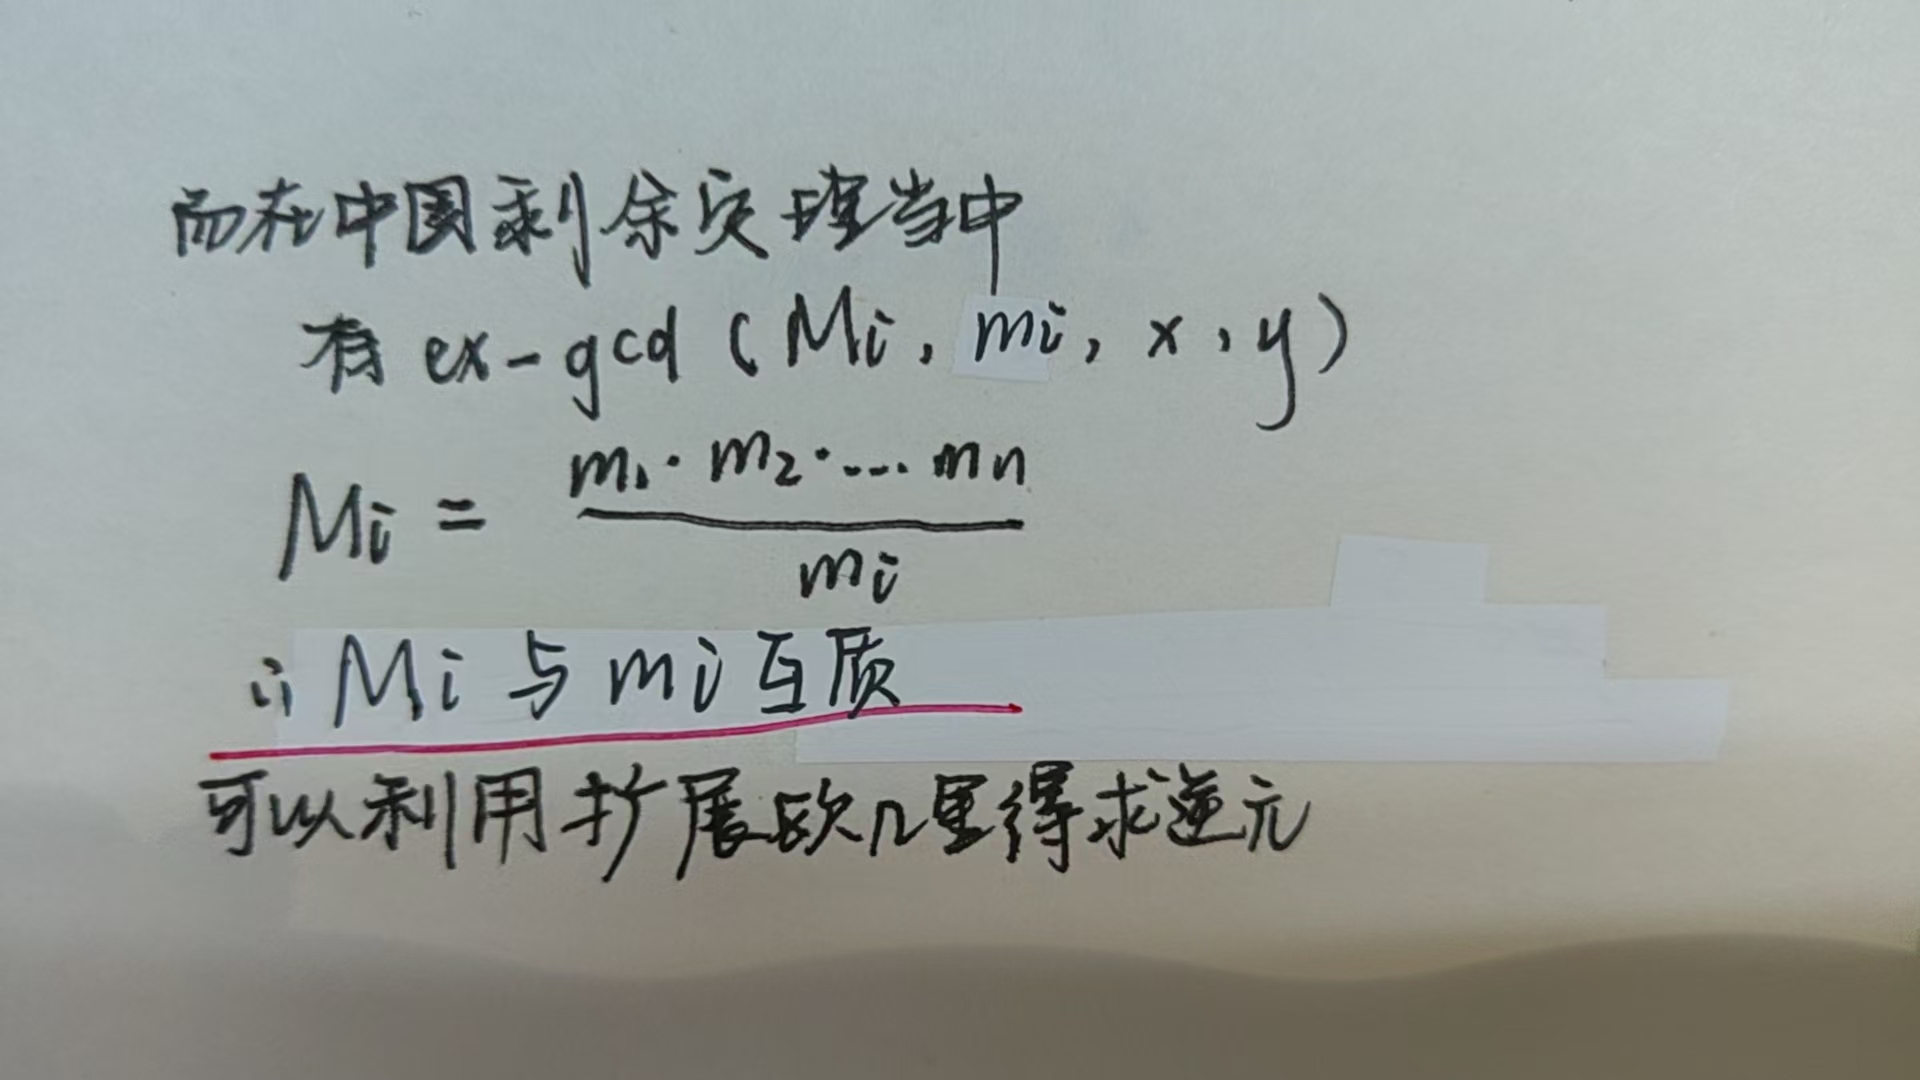 而在中国剩余定理当中
有 ex-gcd (Mi, mi, x, y)
Mi = m1·m2·...mn / mi
∴ Mi 与 mi 互质
可以利用扩展欧几里得求逆元